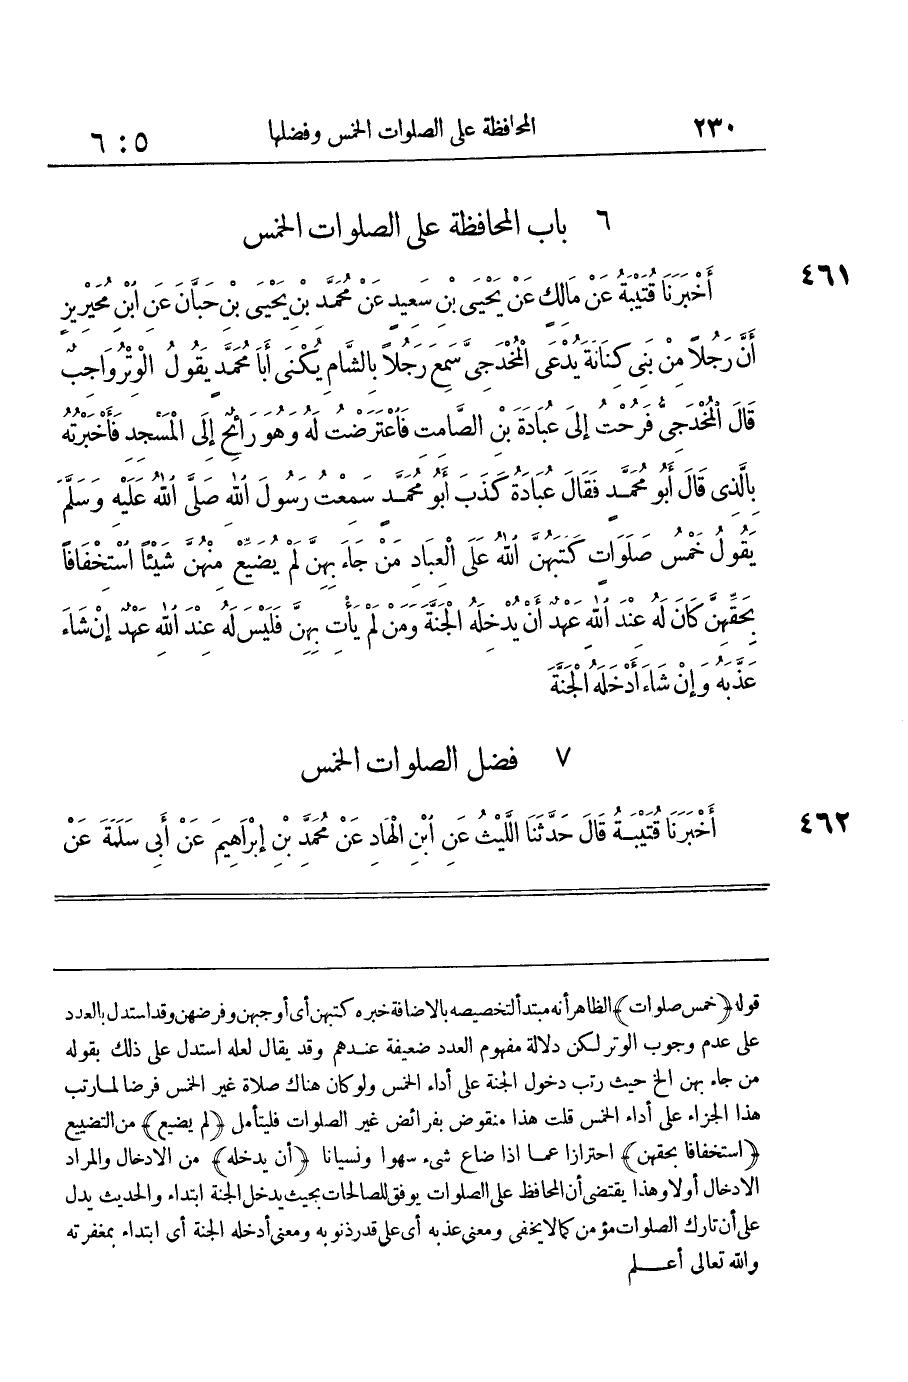 ٢٣٠ المحافظة على الصلوات الخمس وفضلها ٥ : ٦
٦ باب المحافظة على الصلوات الخمس
٤٦١ أَخْبَرَنَا قُتَيْبَةُ عَنْ مَالِكٍ عَنْ يَحْيَى بْنِ سَعِيدٍ عَنْ مُحَمَّدِ بْنِ يَحْيَى بْنِ حَبَّانَ عَنِ ابْنِ مُحَيْرِيزٍ
أَنَّ رَجُلًا مِنْ بَنِي كِنَانَةَ يُدْعَى الْمُخْدَجِيَّ سَمِعَ رَجُلًا بِالشَّامِ يُكْنَى أَبَا مُحَمَّدٍ يَقُولُ الْوِتْرُ وَاجِبٌ
قَالَ الْمُخْدَجِيُّ فَرُحْتُ إِلَى عُبَادَةَ بْنِ الصَّامِتِ فَاعْتَرَضْتُ لَهُ وَهُوَ رَائِحٌ إِلَى الْمَسْجِدِ فَأَخْبَرْتُهُ
بِالَّذِي قَالَ أَبُو مُحَمَّدٍ فَقَالَ عُبَادَةُ كَذَبَ أَبُو مُحَمَّدٍ سَمِعْتُ رَسُولَ اللهِ صَلَّى اللهُ عَلَيْهِ وَسَلَّمَ
يَقُولُ خَمْسُ صَلَوَاتٍ كَتَبَهُنَّ اللهُ عَلَى الْعِبَادِ مَنْ جَاءَ بِهِنَّ لَمْ يُضَيِّعْ مِنْهُنَّ شَيْئًا اسْتِخْفَافًا
بِحَقِّهِنَّ كَانَ لَهُ عِنْدَ اللهِ عَهْدٌ أَنْ يُدْخِلَهُ الْجَنَّةَ وَمَنْ لَمْ يَأْتِ بِهِنَّ فَلَيْسَ لَهُ عِنْدَ اللهِ عَهْدٌ إِنْ شَاءَ
عَذَّبَهُ وَإِنْ شَاءَ أَدْخَلَهُ الْجَنَّةَ
٧ فضل الصلوات الخمس
٤٦٢ أَخْبَرَنَا قُتَيْبَةُ قَالَ حَدَّثَنَا اللَّيْثُ عَنِ ابْنِ الْهَادِ عَنْ مُحَمَّدِ بْنِ إِبْرَاهِيمَ عَنْ أَبِي سَلَمَةَ عَنْ
قوله ﴿خمس صلوات﴾ الظاهر أنه مبتدأ لتخصيصه بالاضافة خبره كتبهن أى أوجبهن وفرضهن وقد استدل بالعدد
على عدم وجوب الوتر لكن دلالة مفهوم العدد ضعيفة عندهم وقد يقال لعله استدل على ذلك بقوله
من جاء بهن الخ حيث رتب دخول الجنة على أداء الخمس ولو كان هناك صلاة غير الخمس فرضا لما رتب
هذا الجزاء على أداء الخمس قلت هذا منقوض بفرائض غير الصلوات فليتأمل ﴿لم يضيع﴾ من التضييع
﴿استخفافا بحقهن﴾ احترازا عما اذا ضاع شىء سهوا ونسيانا ﴿أن يدخله﴾ من الادخال والمراد
الادخال أولا وهذا يقتضى أن المحافظ على الصلوات يوفق للصالحات بحيث يدخل الجنة ابتداء والحديث يدل
على أن تارك الصلوات مؤمن كما لا يخفى ومعنى عذبه أى على قدر ذنوبه ومعنى أدخله الجنة أى ابتداء بمغفرته
والله تعالى أعلم